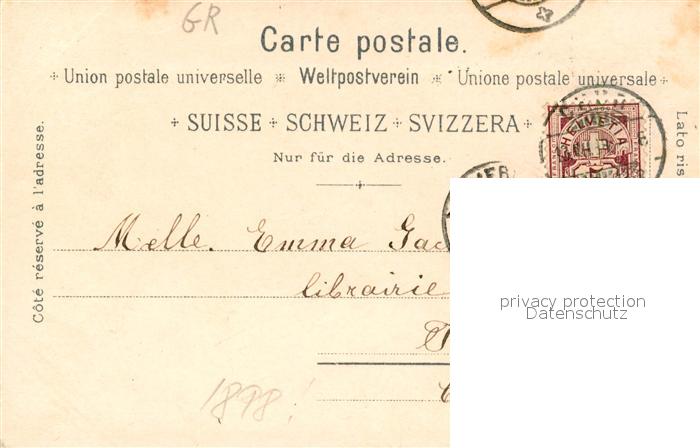 GR
Carte postale.
Union postale universelle Weltpostverein Unione postale universale
SUISSE SCHWEIZ SVIZZERA
Nur für die Adresse.
Côté réservé à l'adresse.
Lato ris
HELVETIA
Melle. Emma
librairie
privacy protection
Datenschutz
1898!